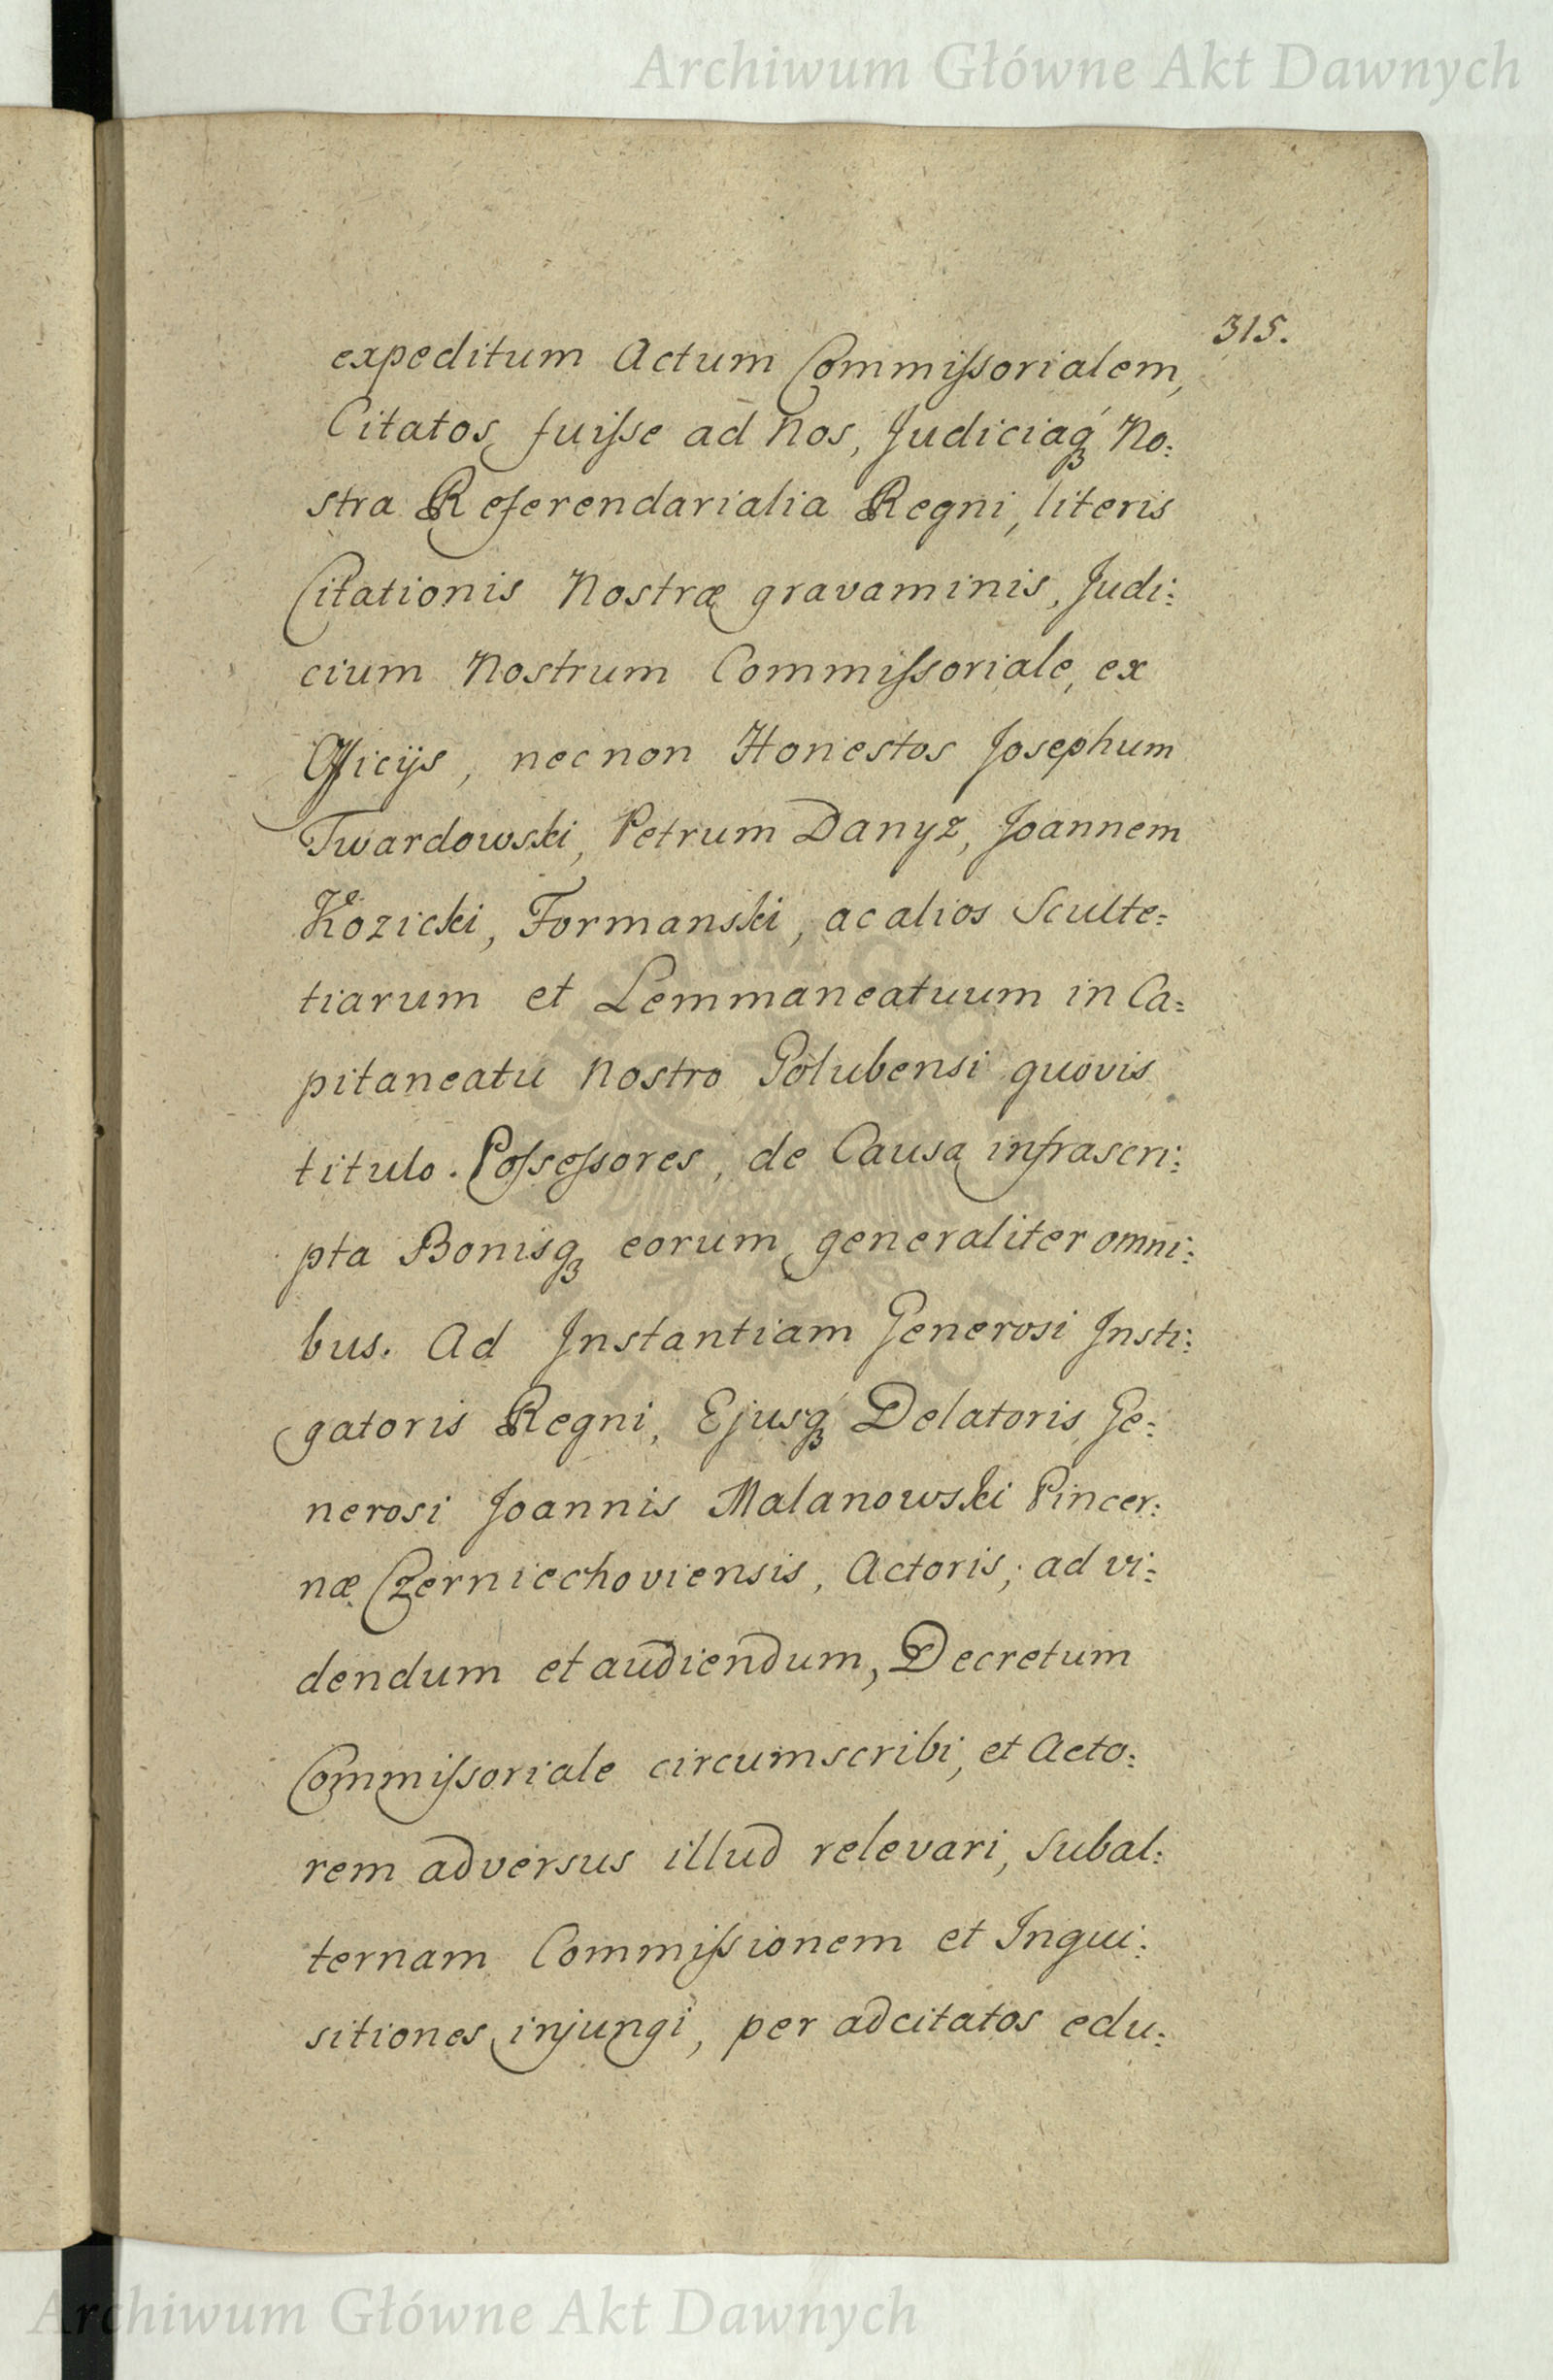 Archiwum Główne Akt Dawnych
315.
expeditum Actum Commissorialem,
Citatos fuisse ad Nos, Judiciaq́ȝ No:
stra Referendarialia Regni, literis
Citationis Nostræ gravaminis, Judi:
cium Nostrum Commissoriale, ex
Officijs, necnon Honestos Josephum
Twardowski, Petrum Danyz, Joannem
Kozicki, Formanski, ac alios Sculte:
tiarum et Lemmaneatuum in Ca:
pitaneatu Nostro Golubensi quovis
titulo. Possessores, de Causa infrascri:
pta Bonisqȝ eorum generaliter omni:
bus. Ad Instantiam Generosi Insti:
gatoris Regni, Ejusq́ȝ Delatoris Ge:
nerosi Joannis Malanowski Pincer:
næ Czerniechoviensis, Actoris; ad vi:
dendum et audiendum, Decretum
Commissoriale circumscribi, et Acto:
rem adversus illud relevari, subal:
ternam Commissionem et Inqui:
sitiones injungi, per adcitatos edu:
Archiwum Główne Akt Dawnych